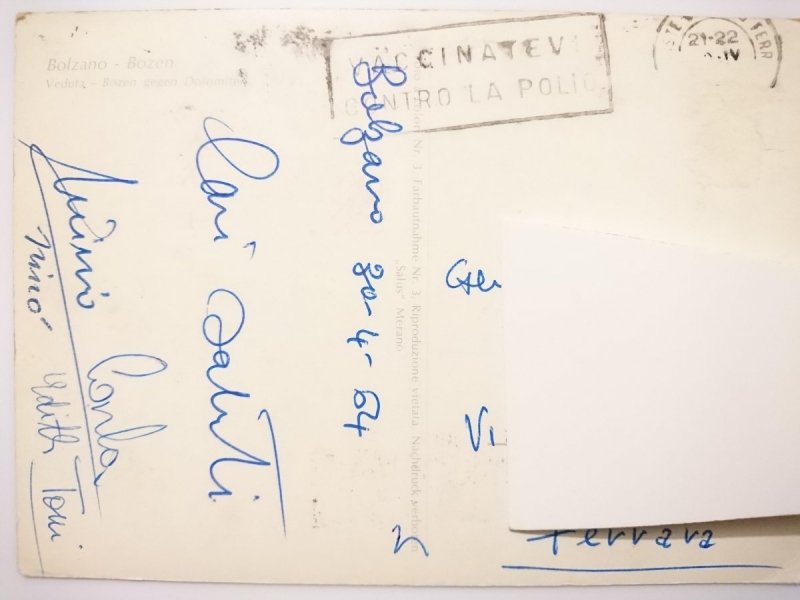 Bolzano - Bozen
Veduta - Bozen gegen Dolomiten
VACCINATEVI
CONTRO LA POLIO
21-22
IV
FERR
Bolzano 30-4-64
Cari Saluti
Carla
Nino
Edith Toni
Nr. 3. Farbaufnahme Nr. 3. Riproduzione vietata Nachdruck verboten
„Salus" Merano
Vi
Ferrara